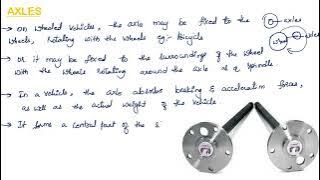 AXLES
→ On wheeled vehicles, the axle may be fixed to the
wheels, rotating with the wheels eg:- Bicycle
axles
wheel
axles
→ Or it may be fixed to the surroundings of the wheel
with the wheels rotating around the axle as a spindle.
→ In a vehicle, the axle absorbs braking & acceleration forces,
as well as the actual weight of the vehicle
→ It forms a central part of the s